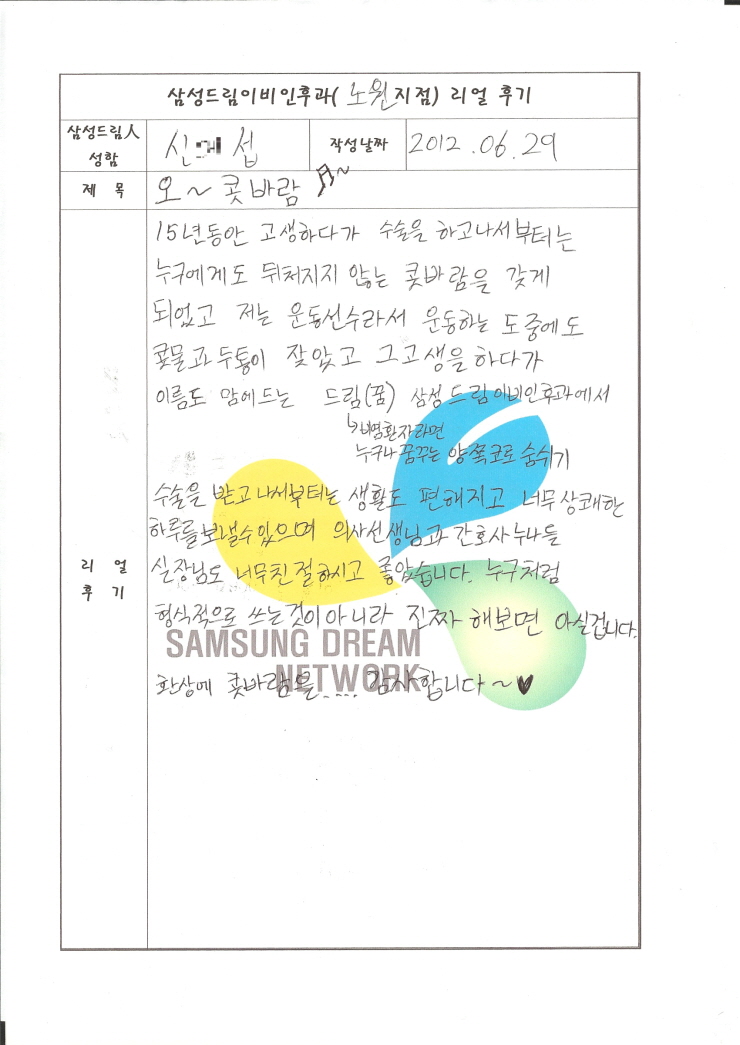 삼성드림이비인후과( 노원지점) 리얼 후기
삼성드림人 성함 신 섭 작성날짜 2012.06.29
제 목 오~ 콧바람 ♬~
15년동안 고생하다가 수술을 하고나서부터는
누구에게도 뒤처지지 않는 콧바람을 갖게
되었고 저는 운동선수라서 운동하는 도중에도
콧물과 두통이 잦았고 그고생을 하다가
이름도 맘에드는 드림(꿈) 삼성드림이비인후과에서
↳비염환자라면
누구나 꿈꾸는 양쪽코로 숨쉬기
수술을 받고나서부터는 생활도 편해지고 너무상쾌한
하루를보낼수있으며 의사선생님과 간호사누나들
실장님도 너무친절하시고 좋았습니다. 누구처럼
형식적으로 쓰는것이아니라 진짜 해보면 아실겁니다.
환상에 콧바람을.... 감사합니다~♥
리 얼
후 기
SAMSUNG DREAM
NETWORK